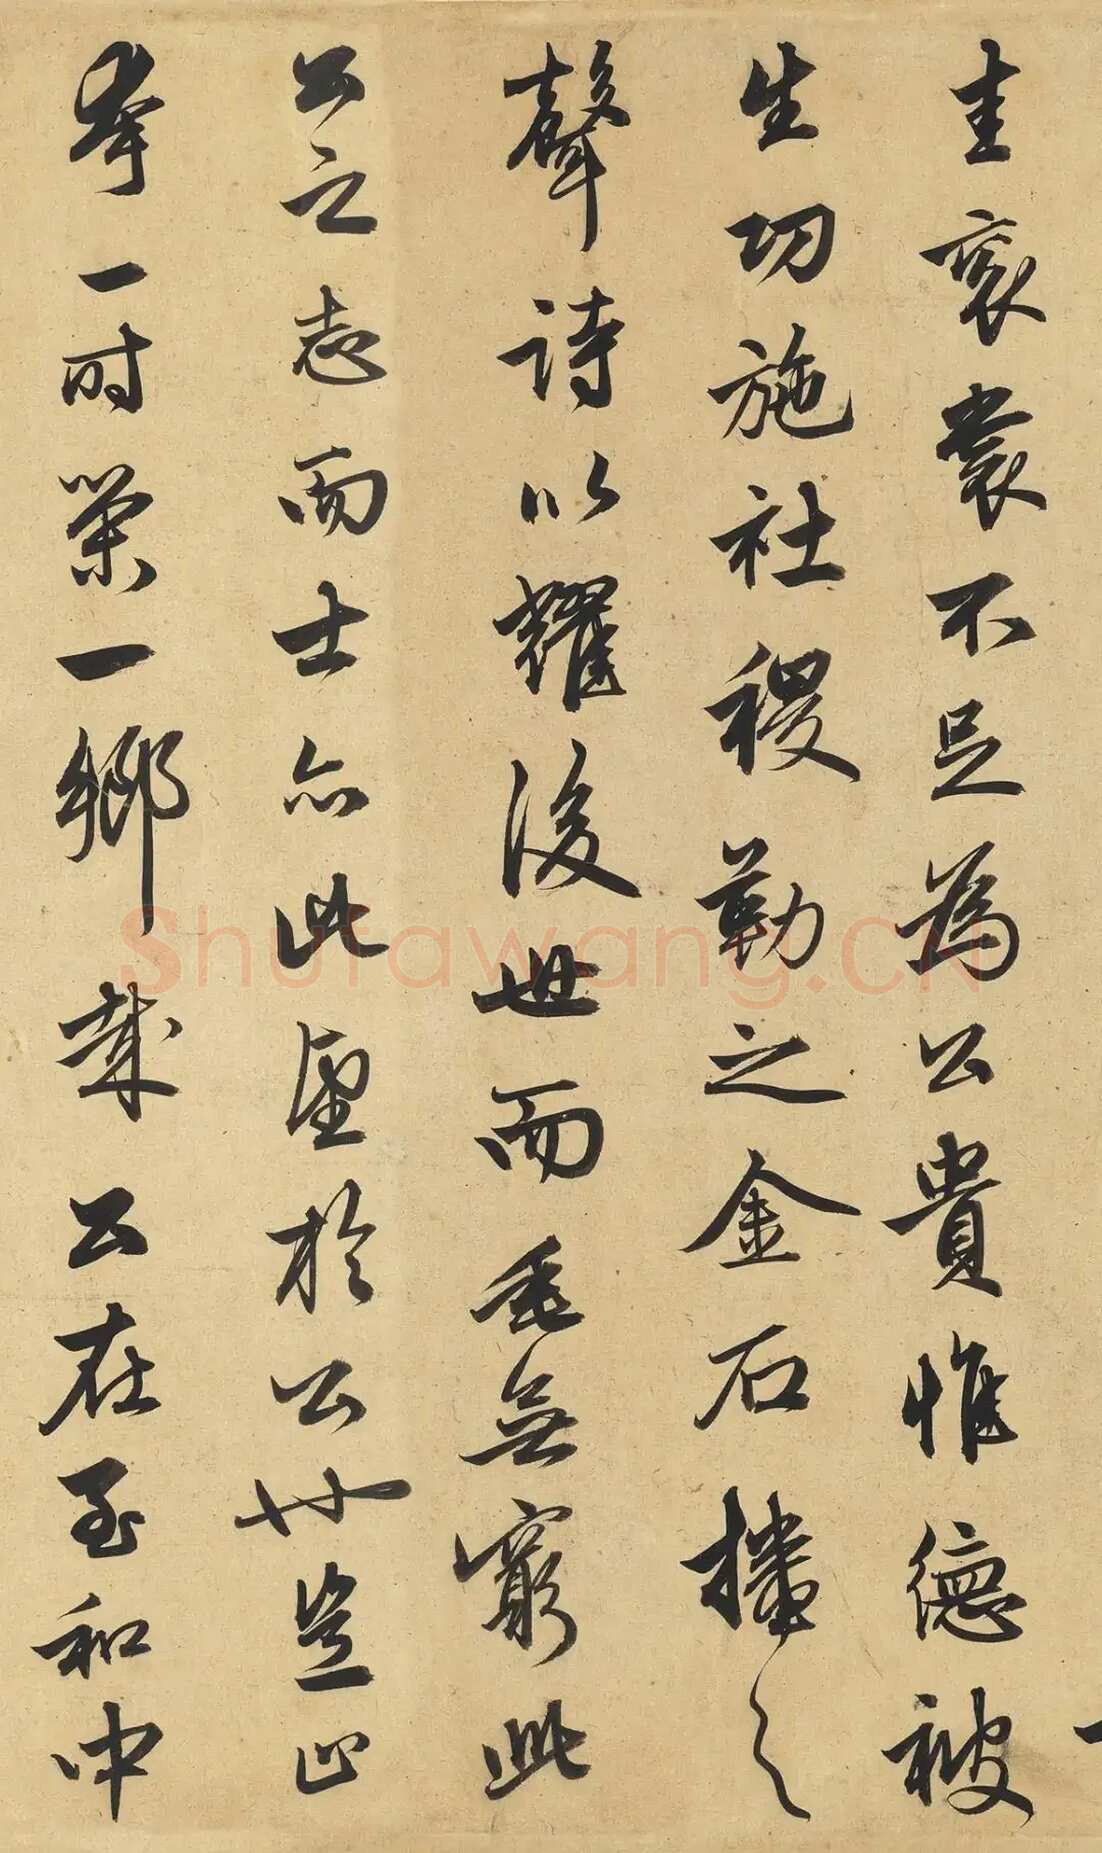 圭衮裳不足為公貴惟德被
生功施社稷勒之金石播之
聲詩以耀後世而垂無窮此
公之志而士亦此望於公也豈止
夸一時榮一鄉哉公在至和中
shufawang.cn